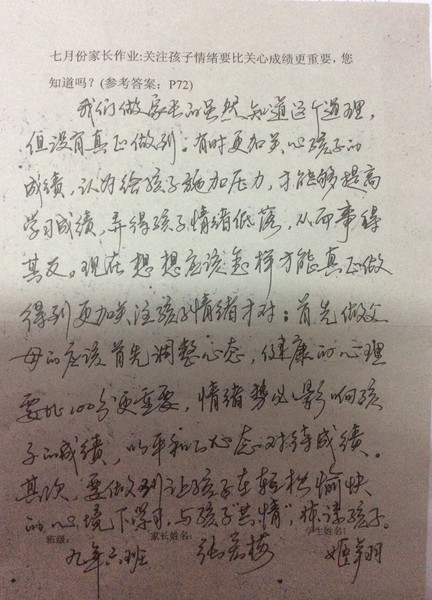 七月份家长作业:关注孩子情绪要比关心成绩更重要，您
知道吗？(参考答案：P72)
我们做家长的虽然知道这个道理，
但没有真正做到。有时更加关心孩子的
成绩，认为给孩子施加压力，才能够提高
学习成绩，弄得孩子情绪低落，从而事得
其反。现在想想应该怎样才能真正做
得到更加关注孩子情绪才对：首先做父
母的应该首先调整心态，健康的心理
要比100分更重要，情绪势必影响孩
子的成绩，以平和的心态对待成绩。
其次，要做到让孩子在轻松愉快
的心境下学习，与孩子“共情”，体谅孩子。
班级： 家长姓名： 学生姓名：
九年六班 张 梅 姬翔